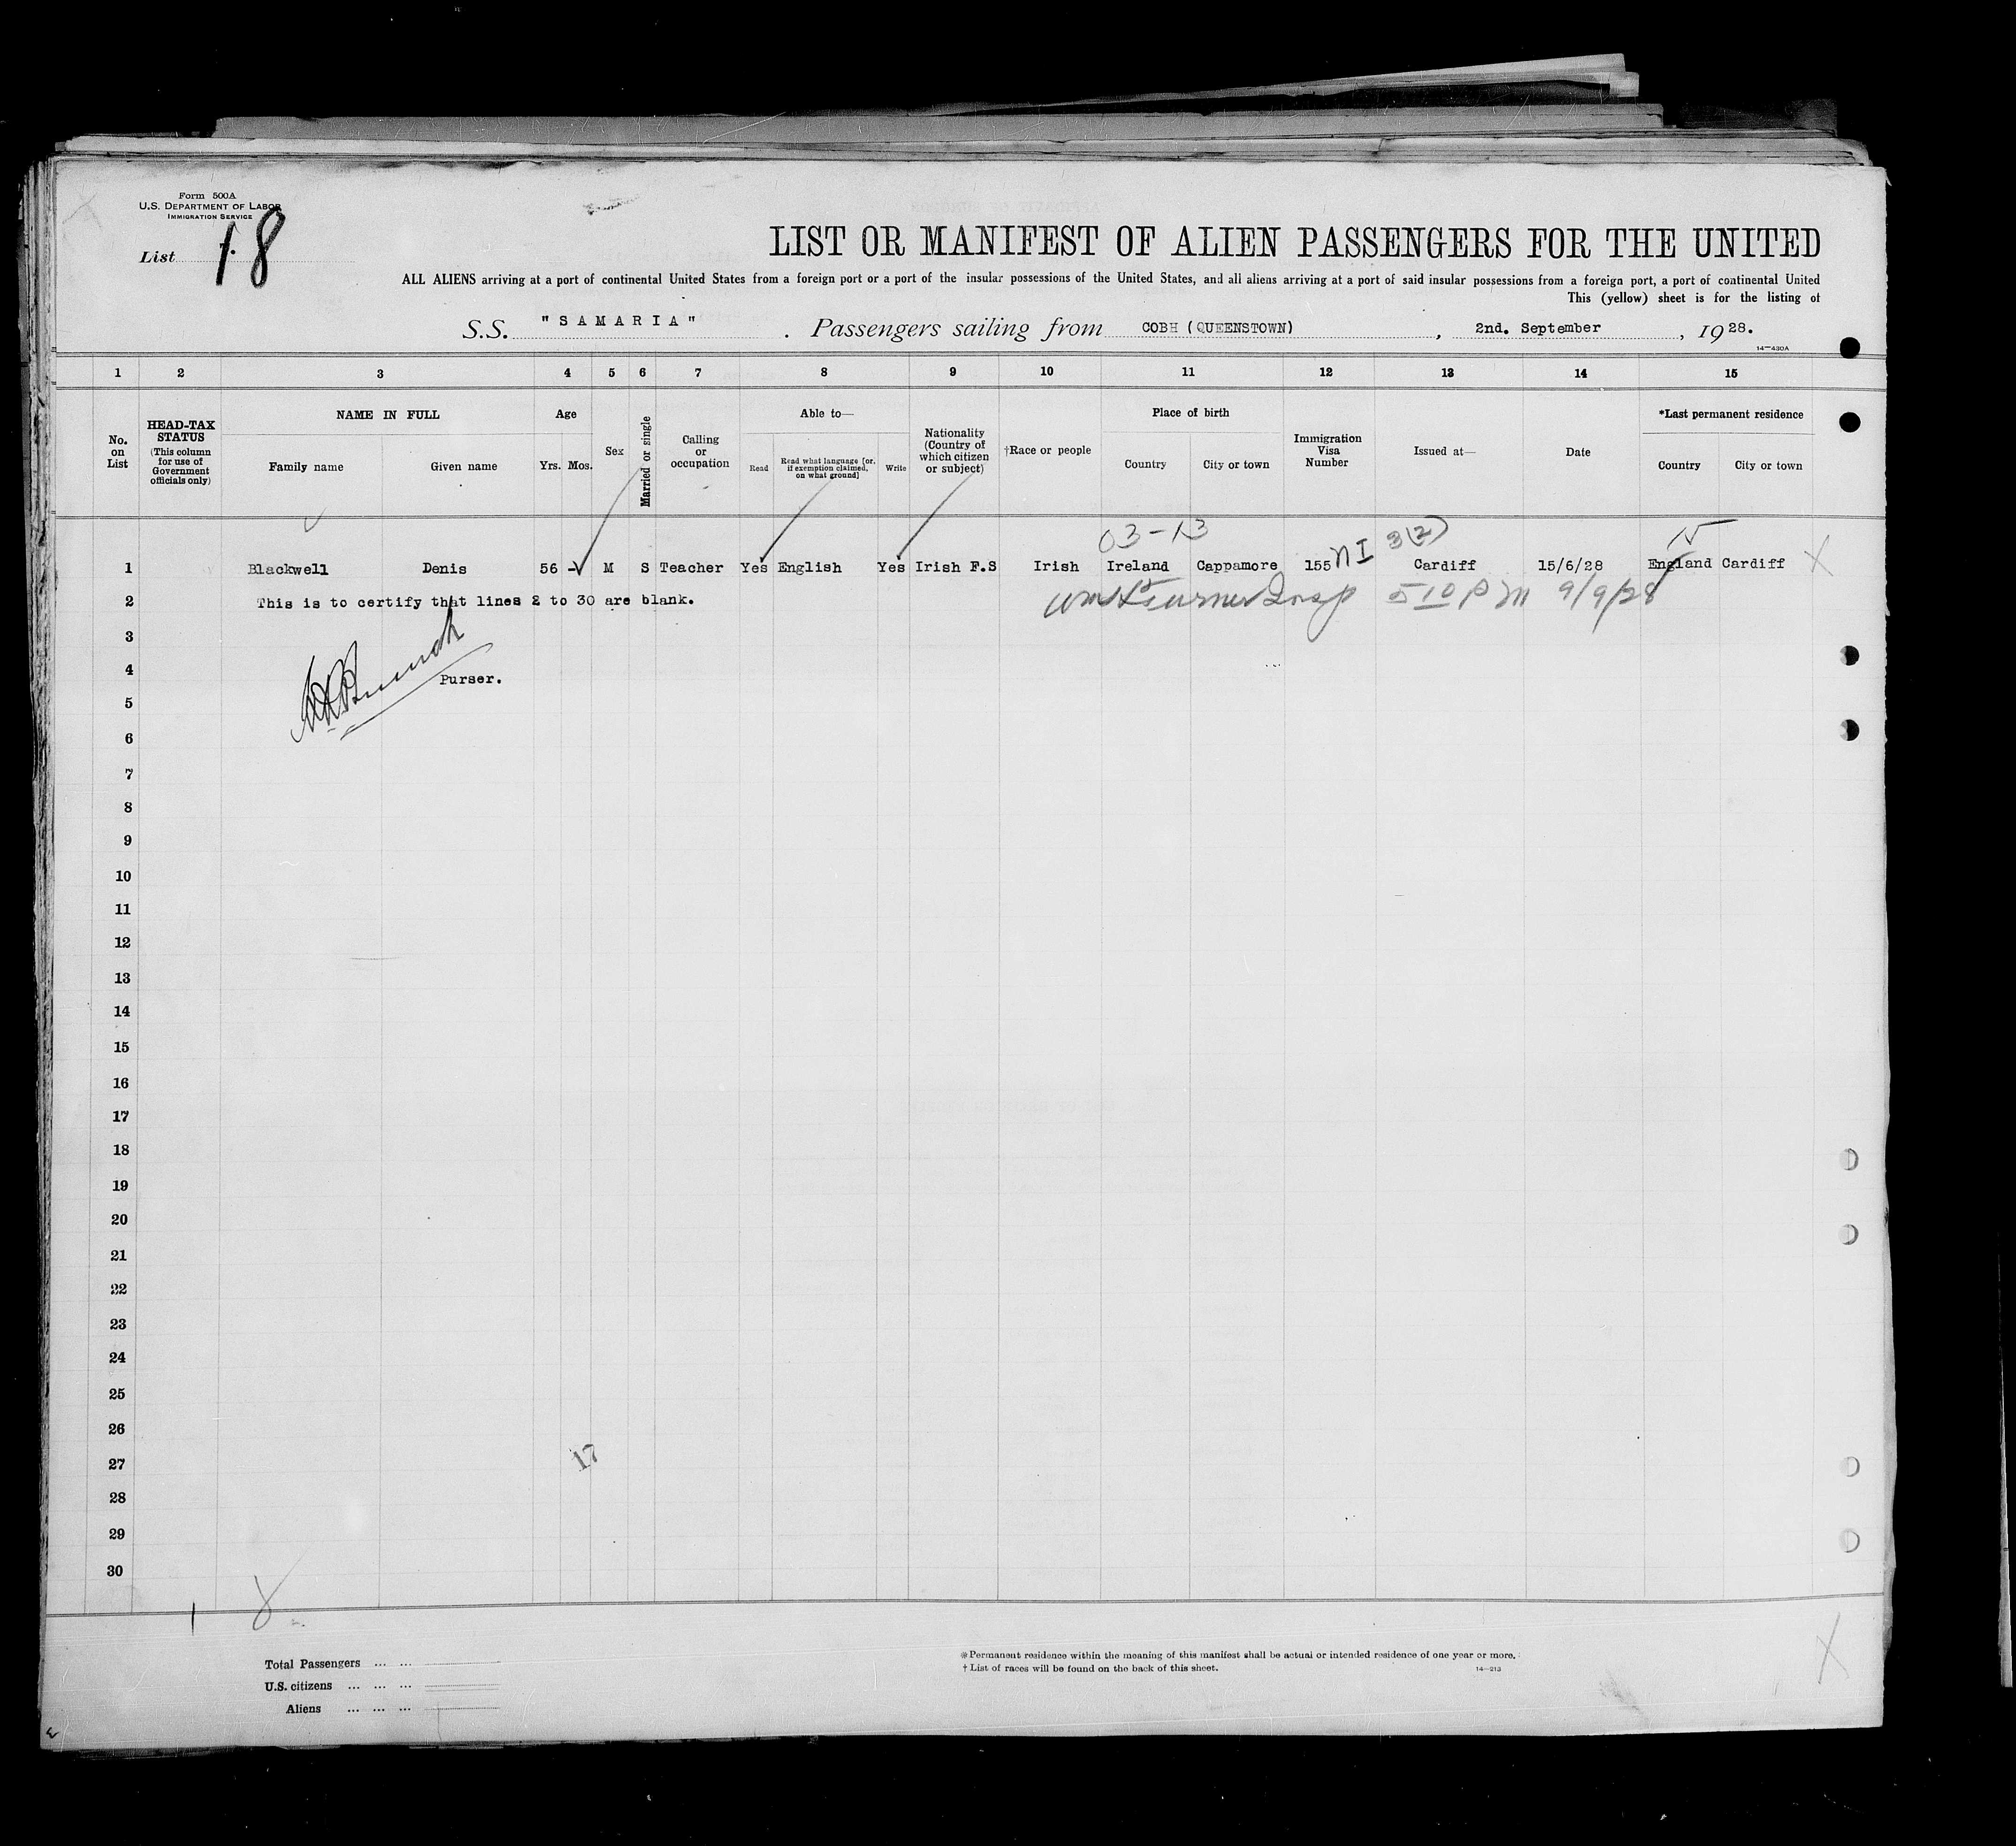 Form 500A
U.S. DEPARTMENT OF LABOR
IMMIGRATION SERVICE
List 18
LIST OR MANIFEST OF ALIEN PASSENGERS FOR THE UNITED
ALL ALIENS arriving at a port of continental United States from a foreign port or a port of the insular possessions of the United States, and all aliens arriving at a port of said insular possessions from a foreign port, a port of continental United
This (yellow) sheet is for the listing of
S.S. "SAMARIA" . Passengers sailing from COBH (QUEENSTOWN) , 2nd. September , 1928.
14—430A
1 2 3 4 5 6 7 8 9 10 11 12 13 14 15
No. on List
HEAD-TAX STATUS
(This column for use of Government officials only)
NAME IN FULL
Family name Given name
Age
Yrs. Mos.
Sex
Married or single
Calling or occupation
Able to—
Read
Read what language [or, if exemption claimed, on what ground]
Write
Nationality (Country of which citizen or subject)
†Race or people
Place of birth
Country City or town
Immigration Visa Number
Issued at—
Date
*Last permanent residence
Country City or town
03-13 3(2) 15
1 Blackwell Denis 56 - M S Teacher Yes English Yes Irish F.S Irish Ireland Cappamore 155 NI Cardiff 15/6/28 England Cardiff X
2 This is to certify that lines 2 to 30 are blank. Turner Insp 5 10 PM 9/9/28
3
4
Purser.
5
6
7
8
9
10
11
12
13
14
15
16
17
18
19
20
21
22
23
24
25
26
27 17
28
29
30
1
Total Passengers ... ...
U.S. citizens ... ... ...
Aliens ... ... ...
*Permanent residence within the meaning of this manifest shall be actual or intended residence of one year or more.
†List of races will be found on the back of this sheet.
14—213
X